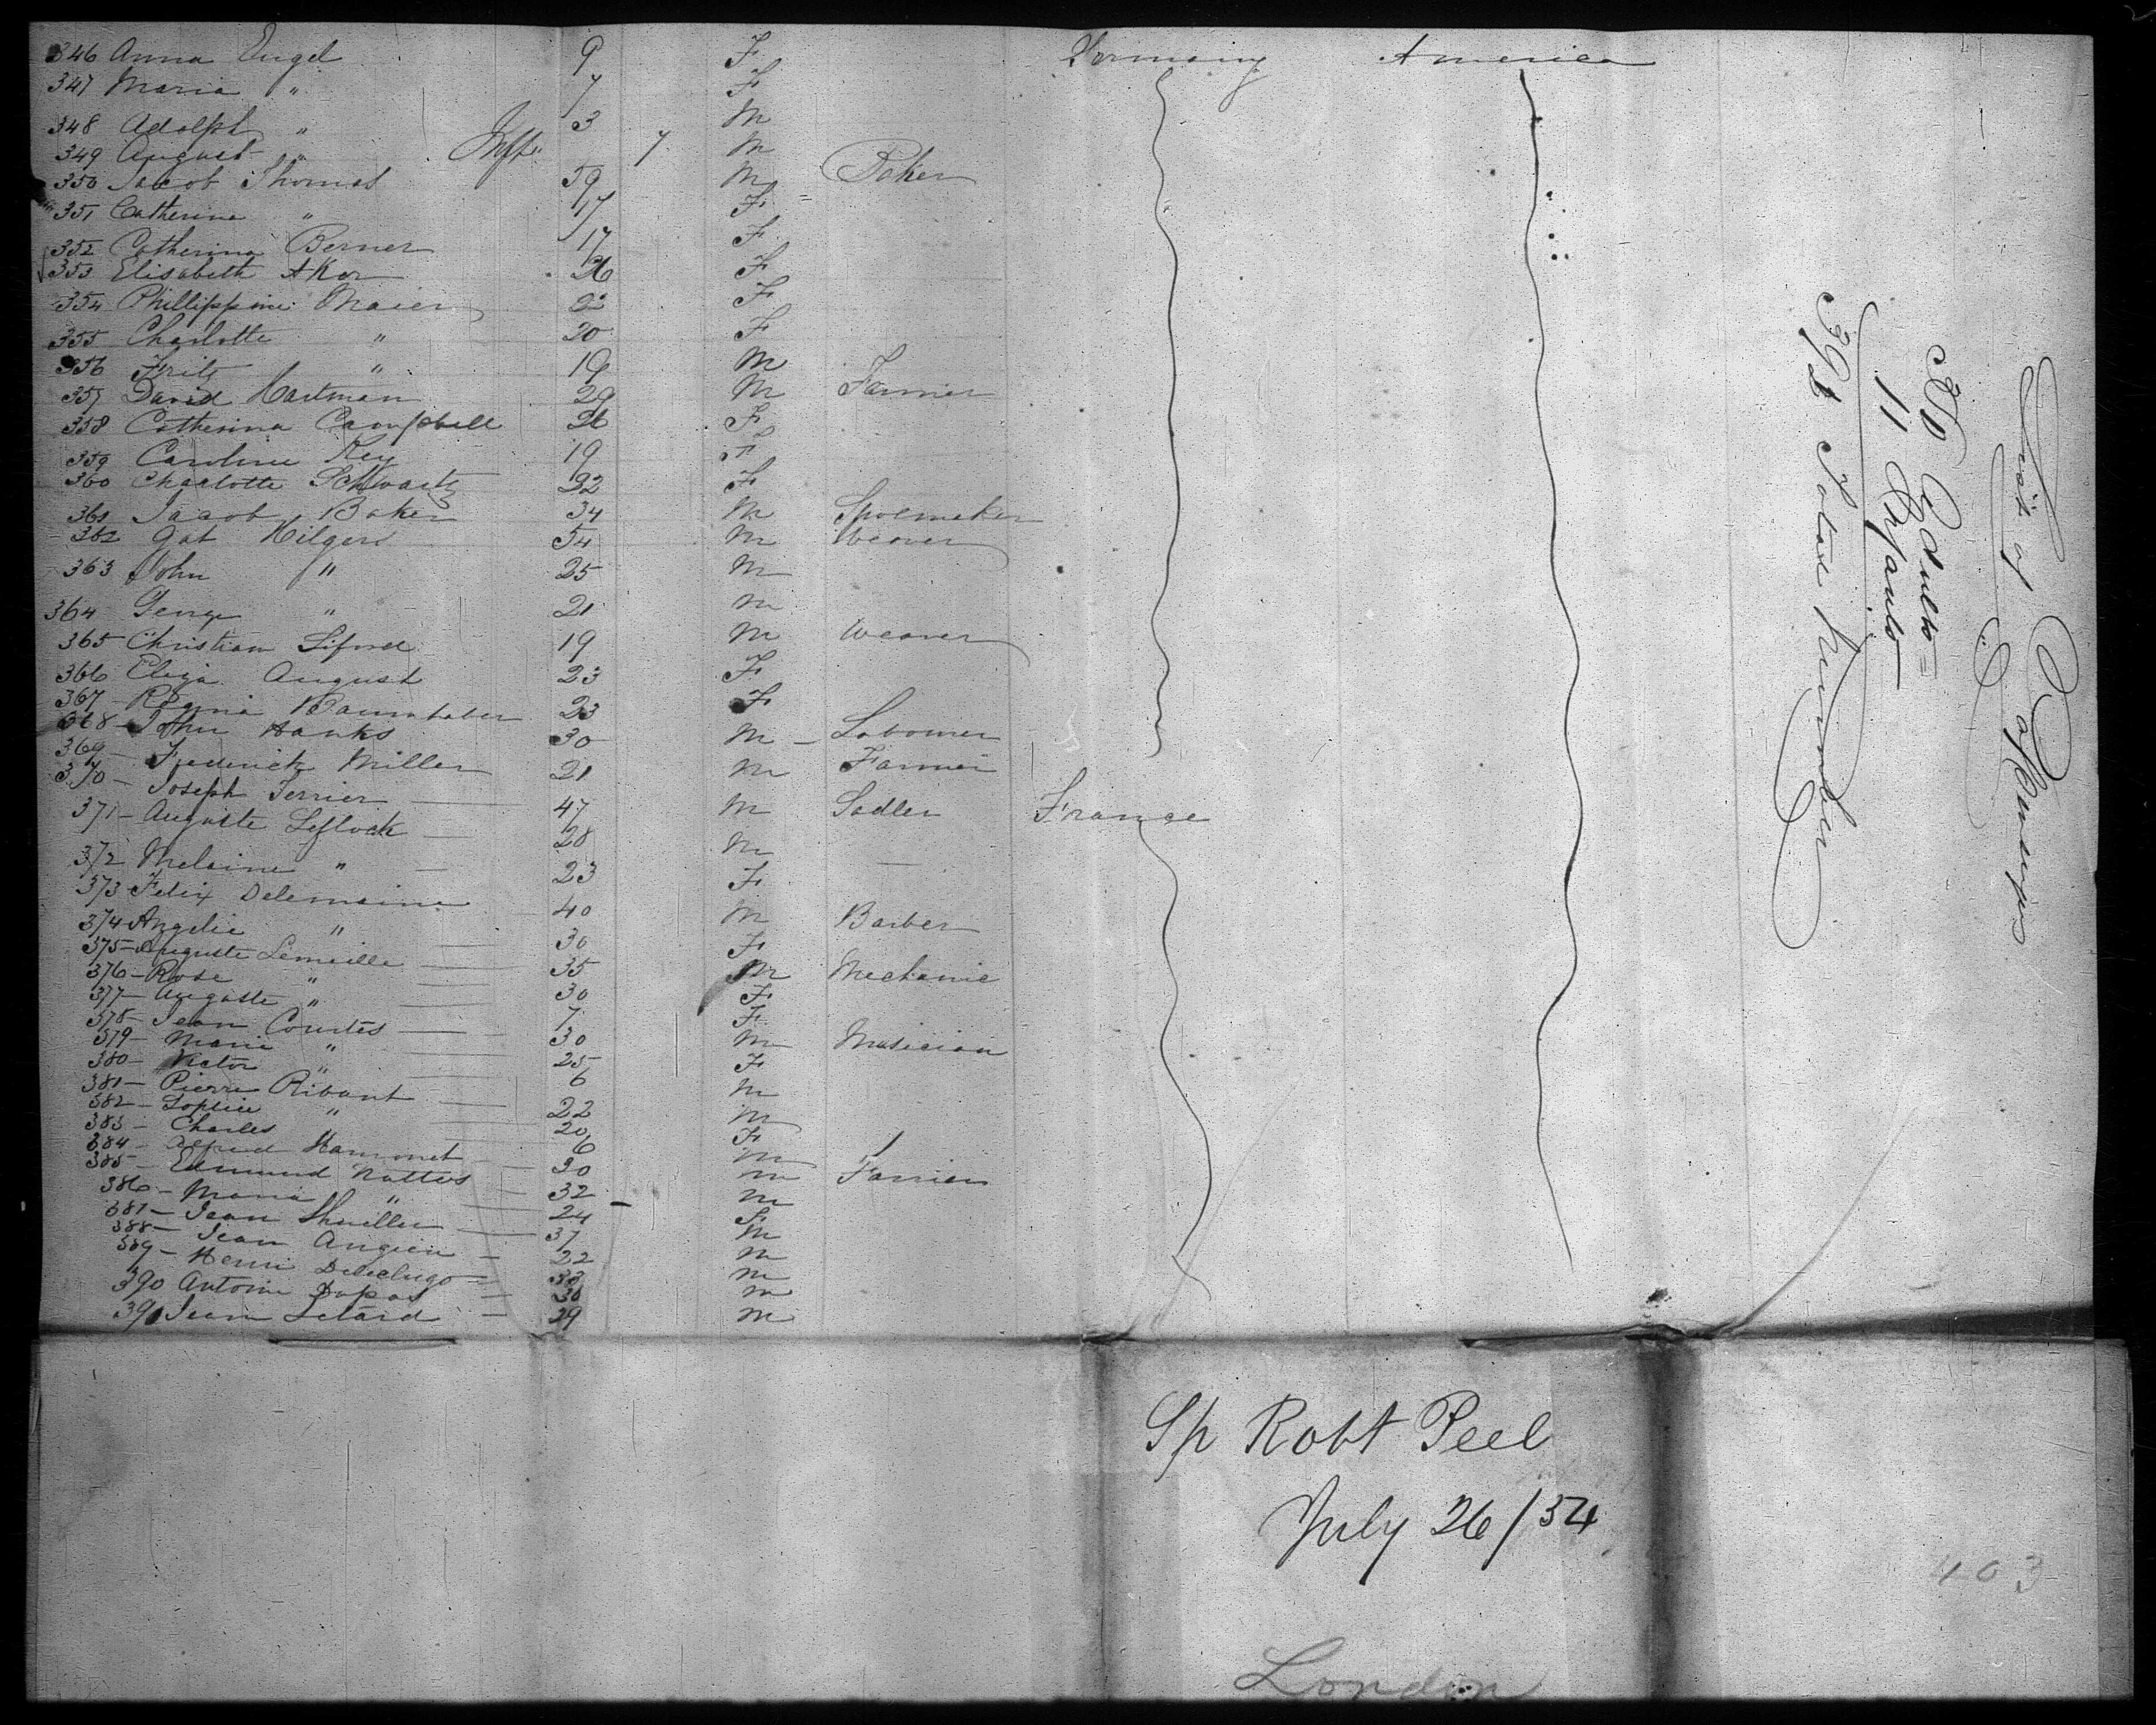 346 Anna Engel 9 F Germany America
347 Maria " 7 F
348 Adolph " 3 M
349 August " Inft. 7 M
350 Jacob Thomas 59 M = Baker
351 Catherine " 17 F
352 Catherina Berner 17 F
353 Elisabeth AKer 26 F
354 Phillippine Maier 2 F
355 Charlotte " 20 F
356 Fritz " 19 M
357 David Hartman 29 M Farmer
358 Catherina Campbell 26 F
359 Caroline Key 19 F
360 Charlotte Schwartz 32 F
361 Jacob Baker 34 M Shoemaker
362 Gat Hilgers 54 M Weaver
363 John " 25 M
364 George " 21 M
365 Christian Siford 19 M Weaver
366 Eliza August 23 F
367 Regina 23 F
368 - John Hanks 30 M - Labourer
369 - Frederick Miller 21 M Farmer
370 - Joseph Ferrier 47 M Sadler France
371 - Auguste Leflock 28 M
372 Melaine " 23 F
373 - Felix Delemaine 40 M Barber
374 Angelie " 30 F
375 - Auguste Lemeille 35 M Mechanic
376 - Rose " 30 F
377 - Auguste " 7 F
378 - Jean Courtes 30 M Musician
379 - Marie " 25 F
380 - Victor " 6 M
381 - Pierre Ribant 22 M
382 - Sophie " 20 F
383 - Charles " 6 M
384 - Alfred Hamonet 30 M Farrier
385 - Edmund Nattes 32 M
386 - Maria " 24 F
387 - Jean 37 M
388 - Jean Angieu 22 M
389 - Henri 33 M
390 Antoine Dupas 30 M
391 Jean Letard 29 M
List of Passengers
380 Adults =
11 Infants
391 Total Number
Sp Robt Peel
July 26/54
403
London